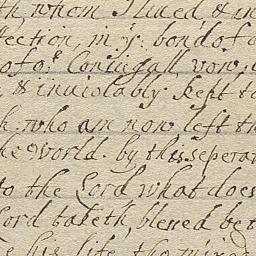 th whom I lived & an
fection, in yͤ bond of
of oͬ Coniugall vow.
& inviolably kept to
who am now left th
he world. by this seperat
to the Lord what does
Lord taketh, blessed be
his life, tho